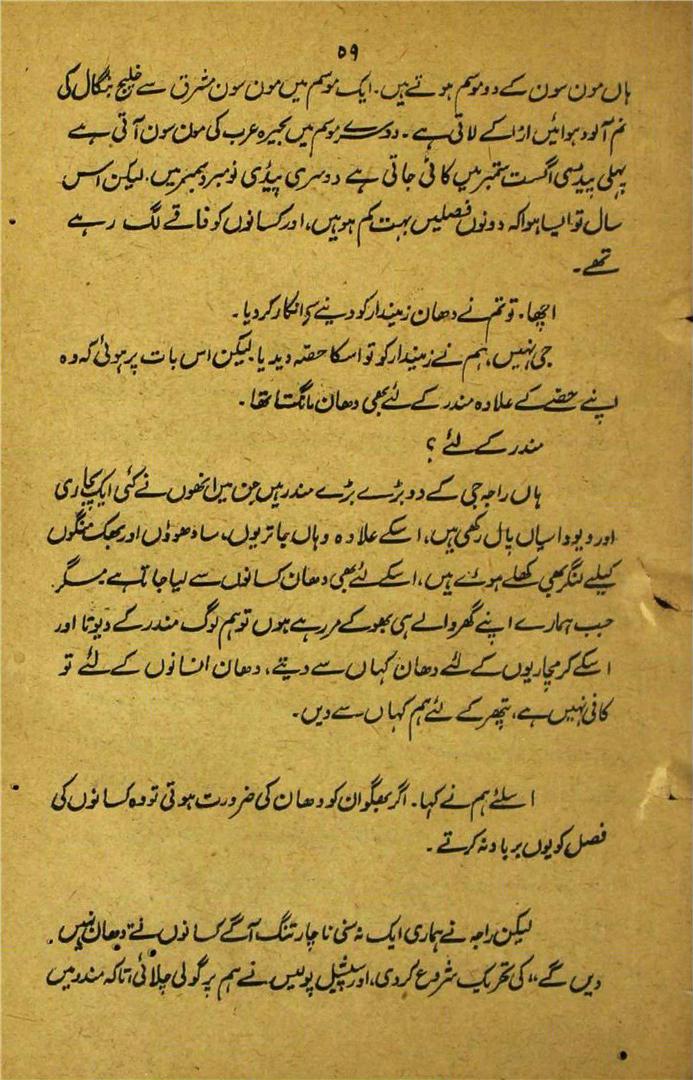 ۵۹
ہاں مون سون کے دو موسم ہوتے ہیں۔ ایک موسم میں مون سون مشرق سے خلیج بنگال کی
نم آلود ہوائیں اڑا کے لاتی ہے۔ دوسرے موسم میں بحیرہ عرب کی مون سون آتی ہے
پہلی پیڈسی اگست ستمبر میں کاٹی جاتی ہے دوسری پیڈی نومبر دسمبر میں۔ لیکن اس
سال تو ایسا ہوا کہ دونوں فصلیں بہت کم ہوئیں، اور کسانوں کو فاقے لگ رہے
تھے۔
اچھا۔ تو تم نے دھان زمیندار کو دینے سے انکار کر دیا۔
جی نہیں، ہم نے زمیندار کو تو اسکا حصّہ دیدیا۔ لیکن اس بات پر ہوئی کہ وہ
اپنے حصّے کے علاوہ مندر کے لئے بھی دھان مانگتا تھا۔
مندر کے لئے ؟
ہاں راجہ جی کے دو بڑے بڑے مندر ہیں جن میں انھوں نے کئی ایک پجاری
اور دیوداسیاں پال رکھی ہیں، اسکے علاوہ وہاں جاتریوں، سادھوؤں اور بھک منگوں
کیلئے لنگر بھی کھلے ہوئے ہیں، اسکے لئے بھی دھان کسانوں سے لیا جاتا ہے مگر
جب ہمارے اپنے گھر والے ہی بھوکے مر رہے ہوں تو ہم لوگ مندر کے دیوتا اور
اسکے کرمچاریوں کے لئے دھان کہاں سے دیتے، دھان انسانوں کے لئے تو
کافی نہیں ہے، پتھر کے لئے ہم کہاں سے دیں۔
اسلئے ہم نے کہا۔ اگر بھگوان کو دھان کی ضرورت ہوتی تو وہ کسانوں کی
فصل کو یوں برباد نہ کرتے۔
لیکن راجہ نے ہماری ایک نہ سنی ناچار تنگ آ کے کسانوں نے دھان نہیں
دیں گے،، کی تحریک شروع کردی، اور سپیشل پولیس نے ہم پر گولی چلائی تاکہ مندر میں